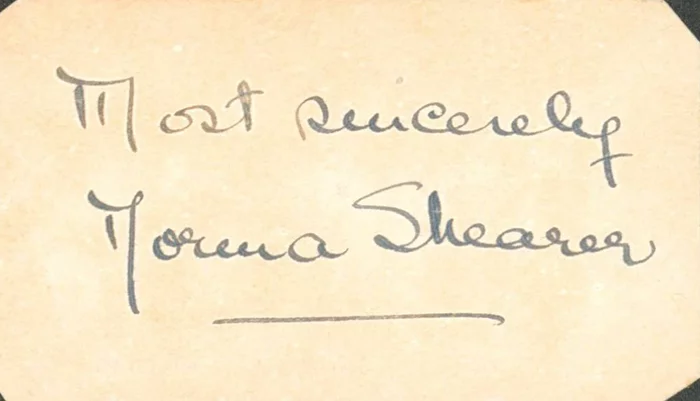 Most sincerely
Norma Shearer